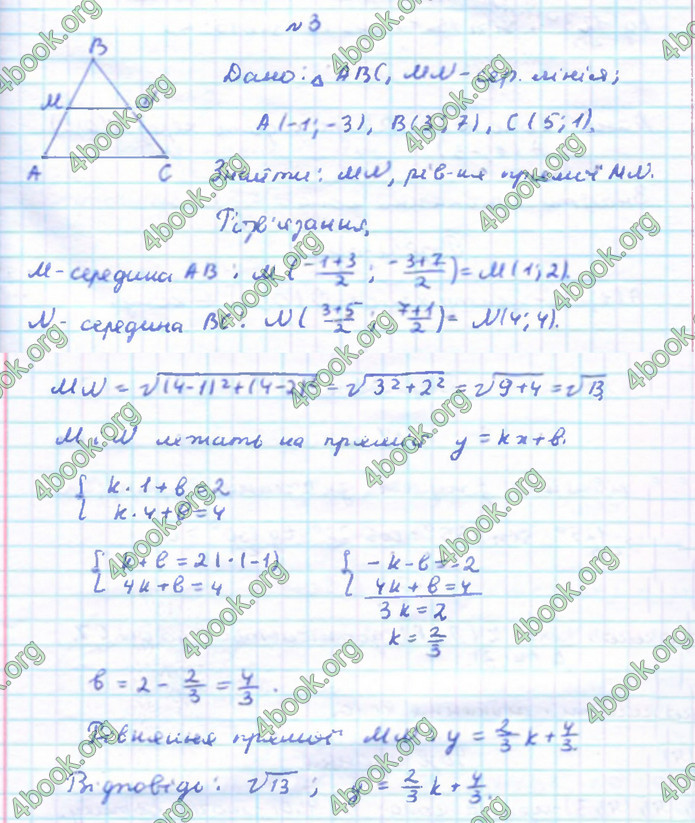 №3
B
Дано: △ ABC, MN - сер. лінія;
M N
A(-1; -3), B(3; 7), C(5; 1).
A C
Знайти: MN, рів-ня прямої MN.
Розв'язання.
M - середина AB: M(\frac{-1+3}{2}; \frac{-3+7}{2}) = M(1; 2).
N - середина BC: N(\frac{3+5}{2}; \frac{7+1}{2}) = N(4; 4).
MN = √((4-1)²+(4-2)²) = √(3²+2²) = √(9+4) = √13,
M і N лежать на прямій y = kx+b.
{ k·1+b=2
k·4+b=4
{ k+b=2 |·(-1) { -k-b=-2
4k+b=4 4k+b=4
3k=2
k=\frac{2}{3}
b = 2 - \frac{2}{3} = \frac{4}{3}.
Рівняння прямої MN: y = \frac{2}{3}k + \frac{4}{3}.
Відповідь: √13; y = \frac{2}{3}k + \frac{4}{3}.
4book.org